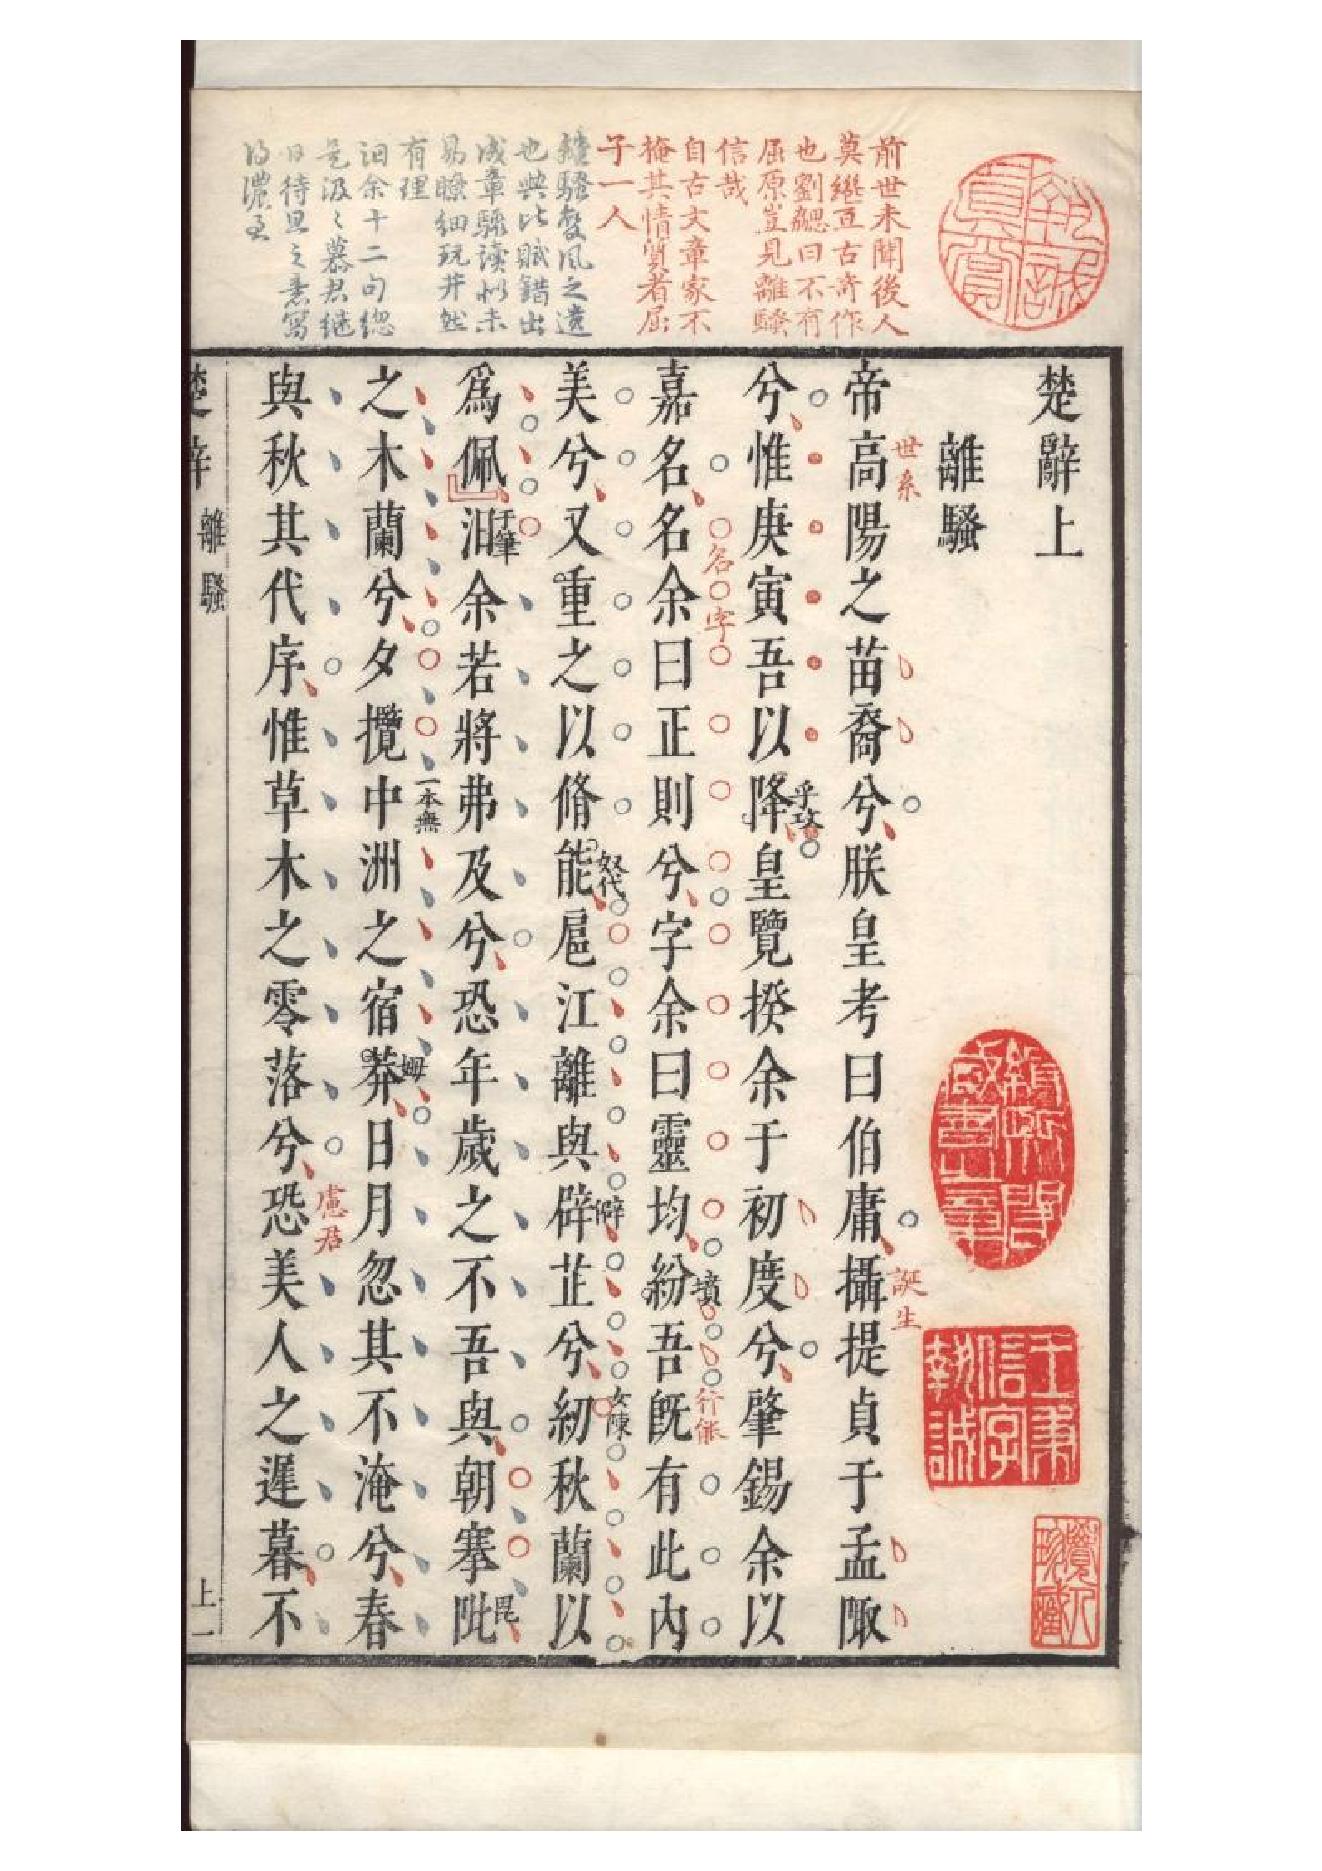 前世未聞後人
莫繼亘古奇作
也劉勰曰不有
屈原豈見離騷
信哉
自古文章家不
掩其情質者屈
子一人
離騷變風之遺
也興比賦錯出
成章驟讀似未
易瞭細玩井然
有理
汩余十二句總
是汲々慕君繼
日待旦之意寫
得濃至
楚辭上
離騷
帝高陽之苗裔兮朕皇考曰伯庸攝提貞于孟陬
世系
誕生
兮惟庚寅吾以降皇覽揆余于初度兮肇錫余以
乎攻
嘉名名余曰正則兮字余曰靈均紛吾既有此內
名
字
墳
行能
美兮又重之以脩能扈江離與辟芷兮紉秋蘭以
奴代
僻
女陳
爲佩汨余若將弗及兮恐年歲之不吾與朝搴阰
于筆
毘
之木蘭兮夕攬中洲之宿莽日月忽其不淹兮春
一本無
姆
與秋其代序惟草木之零落兮恐美人之遲暮不
慮君
楚辛 離騷 上一
執誠
真賞
王秉
信字
執誠